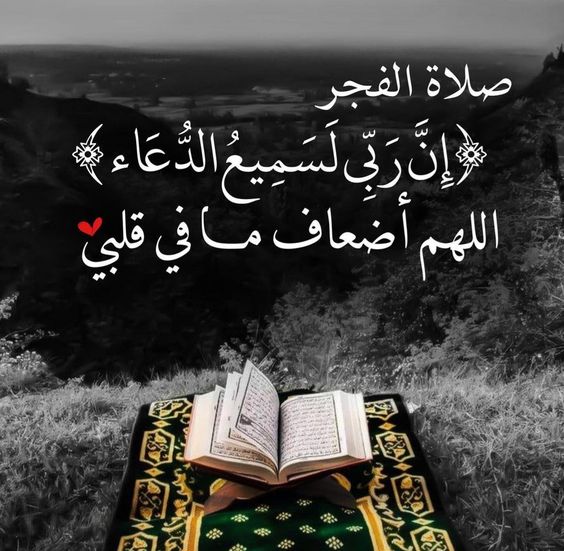 صلاة الفجر
﴿إِنَّ رَبِّي لَسَمِيعُ الدُّعَاء﴾
اللهم أضعاف مـا في قلبي